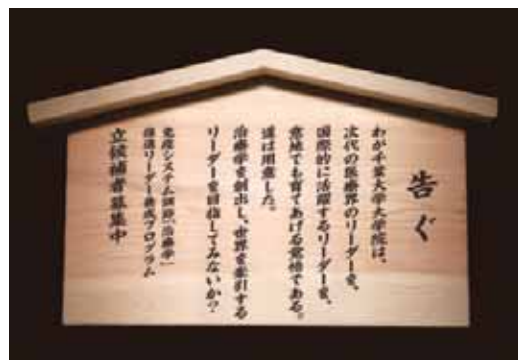 告ぐ
わが千葉大学大学院は、
次代の医療界のリーダーを、
国際的に活躍するリーダーを、
意地でも育てあげる覚悟である。
道は用意した。
治療学を創出し、世界を牽引する
リーダーを目指してみないか?
免疫システム調節治療学
推進リーダー養成プログラム
立候補者募集中